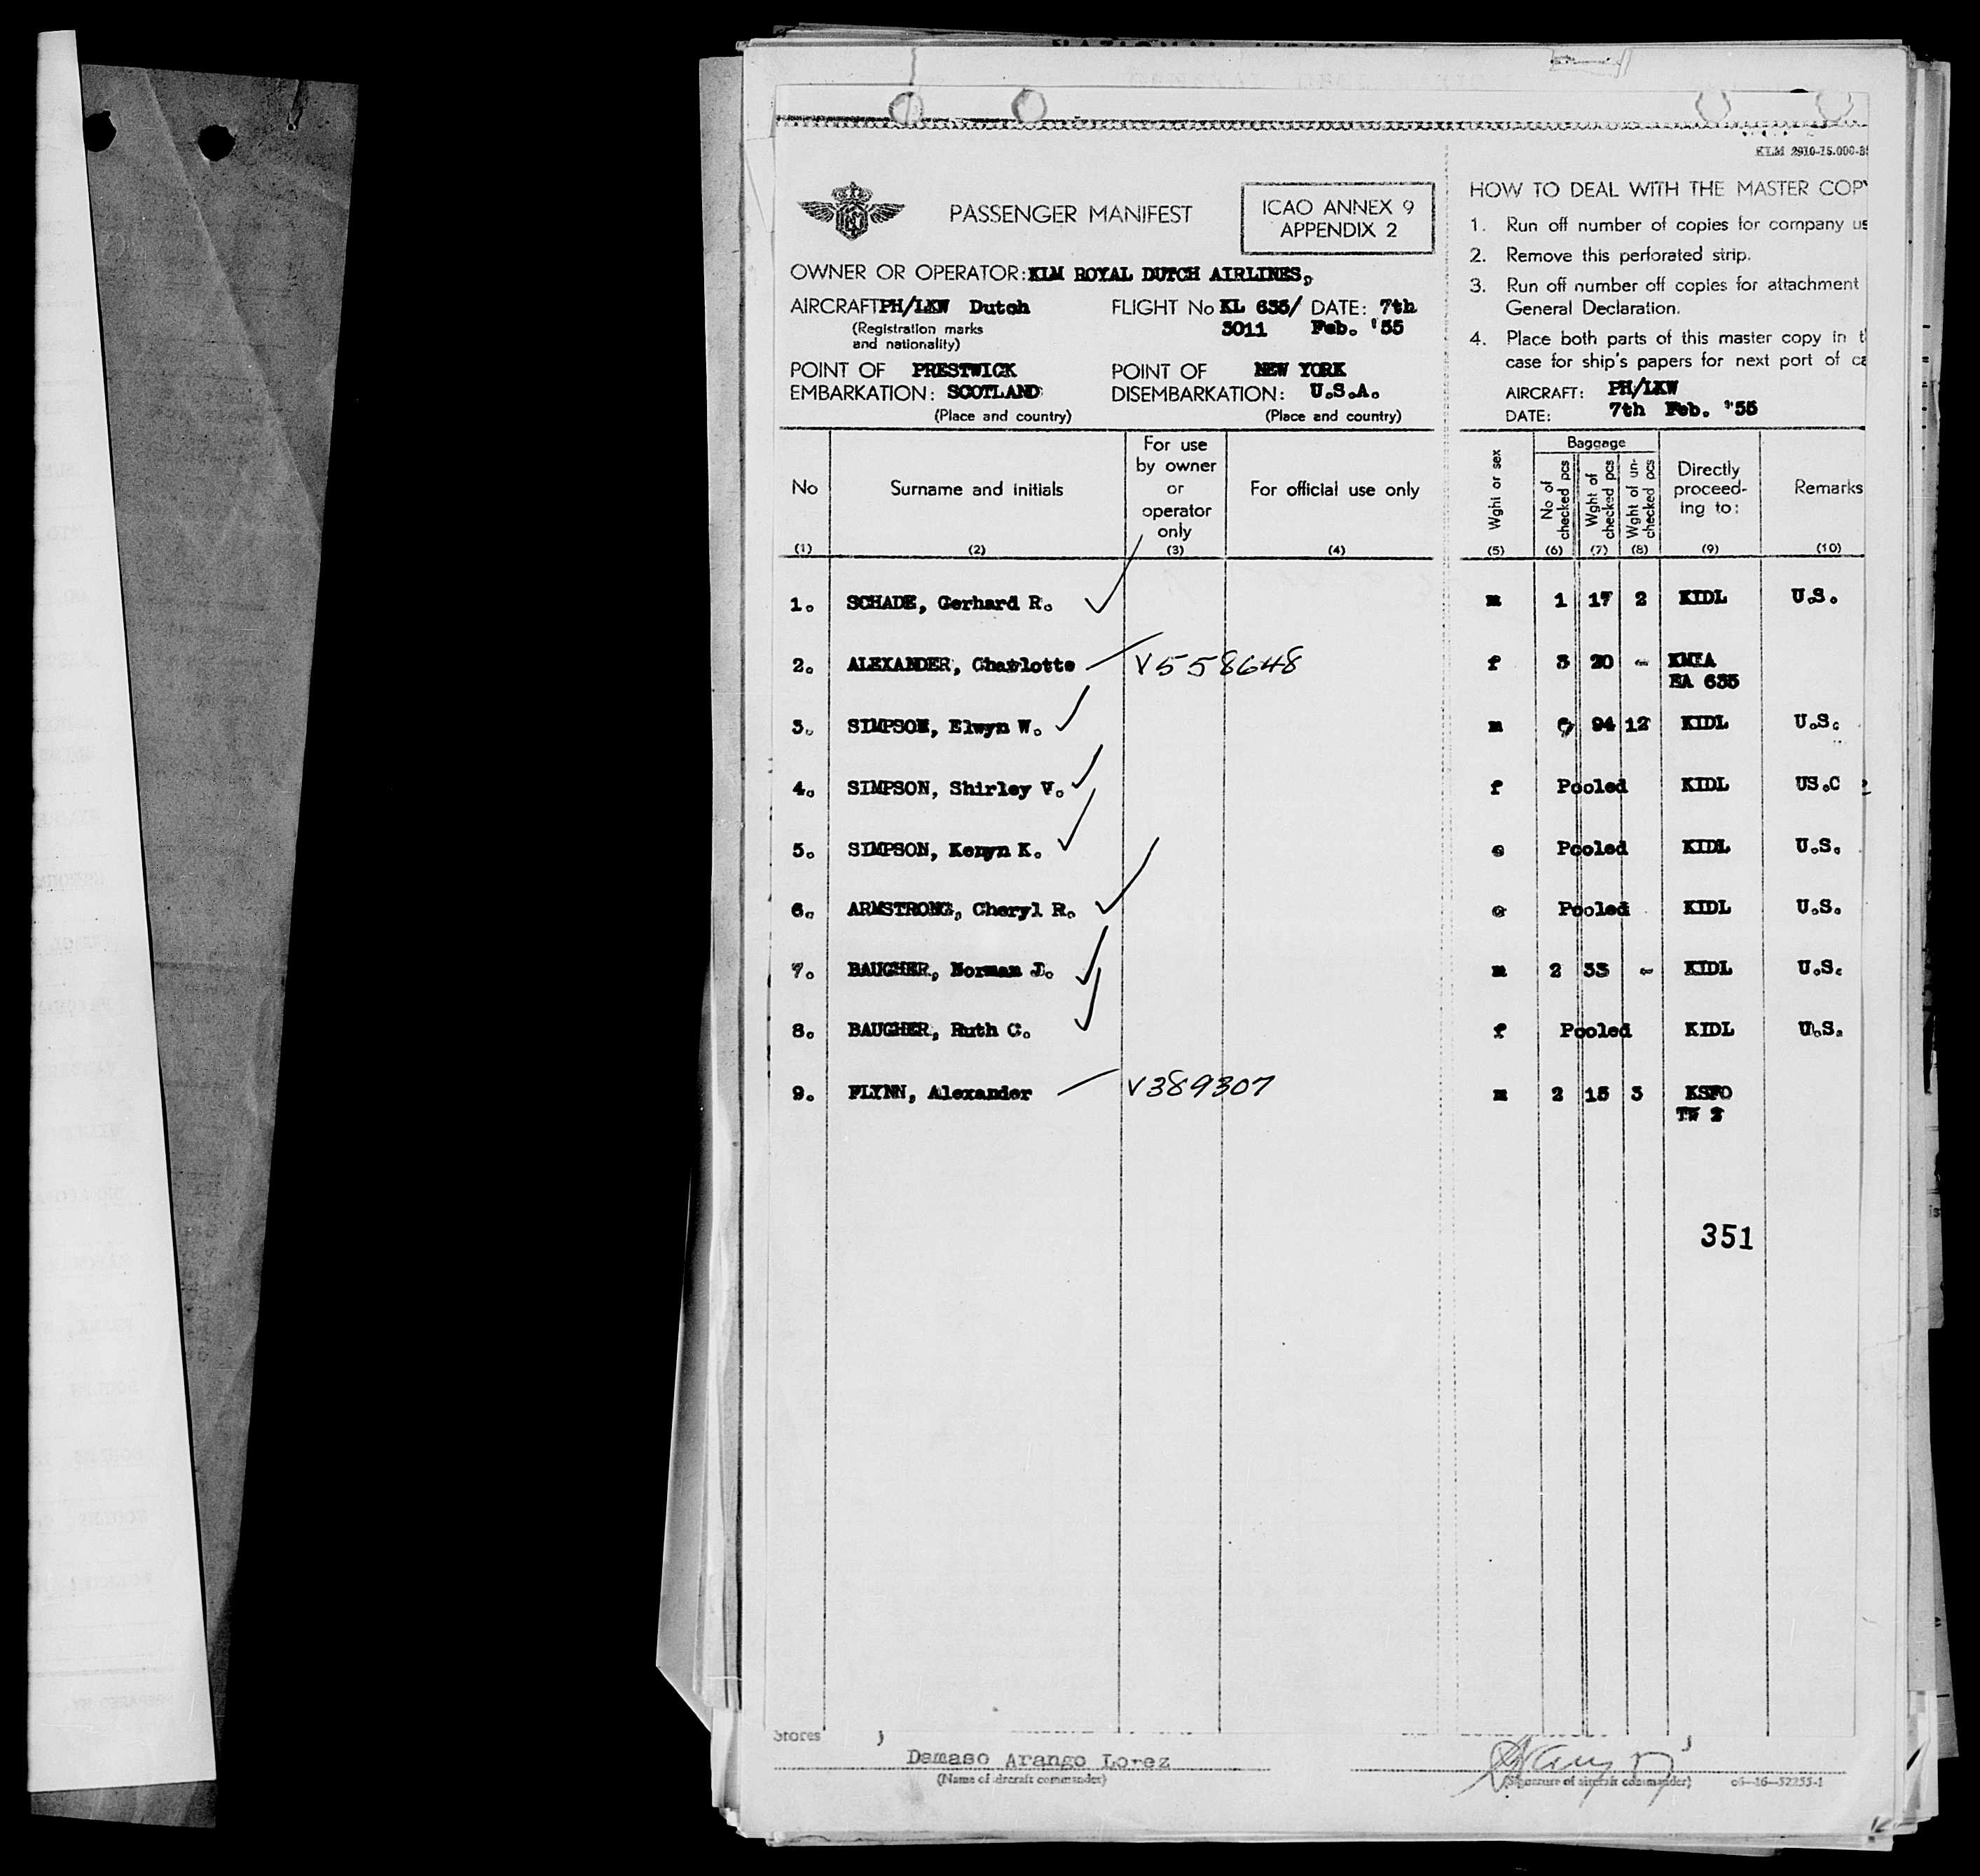 KLM 2910-15.000-
PASSENGER MANIFEST
ICAO ANNEX 9
APPENDIX 2
OWNER OR OPERATOR: KLM ROYAL DUTCH AIRLINES,
AIRCRAFT PH/LKW Dutch FLIGHT No KL 635/ DATE: 7th
(Registration marks 3011 Feb. '55
and nationality)
POINT OF PRESTWICK POINT OF NEW YORK
EMBARKATION: SCOTLAND DISEMBARKATION: U.S.A.
(Place and country) (Place and country)
HOW TO DEAL WITH THE MASTER COPY
1. Run off number of copies for company us
2. Remove this perforated strip.
3. Run off number off copies for attachment
General Declaration.
4. Place both parts of this master copy in t
case for ship's papers for next port of ca
AIRCRAFT: PH/LKW
DATE: 7th Feb. '55
No Surname and initials For use by owner or operator only For official use only Wght or sex Baggage No of checked pcs Wght of checked pcs Wght of un-checked pcs Directly proceed-ing to: Remarks
(1) (2) (3) (4) (5) (6) (7) (8) (9) (10)
1. SCHADE, Gerhard R. m 1 17 2 KIDL U.S.
2. ALEXANDER, Charlotte V558648 f 3 20 - KMIA
EA 635
3. SIMPSON, Elwyn W. m 94 12 KIDL U.S.
4. SIMPSON, Shirley V. f Pooled KIDL US.C
5. SIMPSON, Keryn K. c Pooled KIDL U.S.
6. ARMSTRONG, Cheryl R. c Pooled KIDL U.S.
7. BAUGHER, Norman J. m 2 33 - KIDL U.S.
8. BAUGHER, Ruth C. f Pooled KIDL U.S.
9. FLYNN, Alexander V389307 m 2 15 3 KSFO
TW 2
351
Stores
Damaso Arango Lorez
(Name of aircraft commander) (Signature of aircraft commander) 16-52255-1